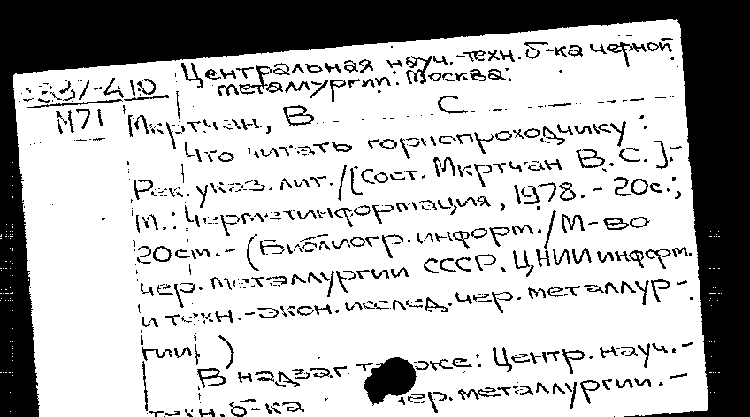 Центральная науч.-техн. б-ка черной
металлургии. Москва.
337-410
М71
Мкртчан, В С
Что читать горнопроходчику:
Рек. указ. лит./[Сост. Мкртчан В.С.].-
М.: Черметинформация, 1978.-20с.;
20см.-(Библиогр. информ./М-во
чер. металлургии СССР. ЦНИИ информ.
и техн.-экон. исслед. чер. металлур-
гии.)
В надзаг также: Центр. науч.-
техн. б-ка чер. металлургии.-